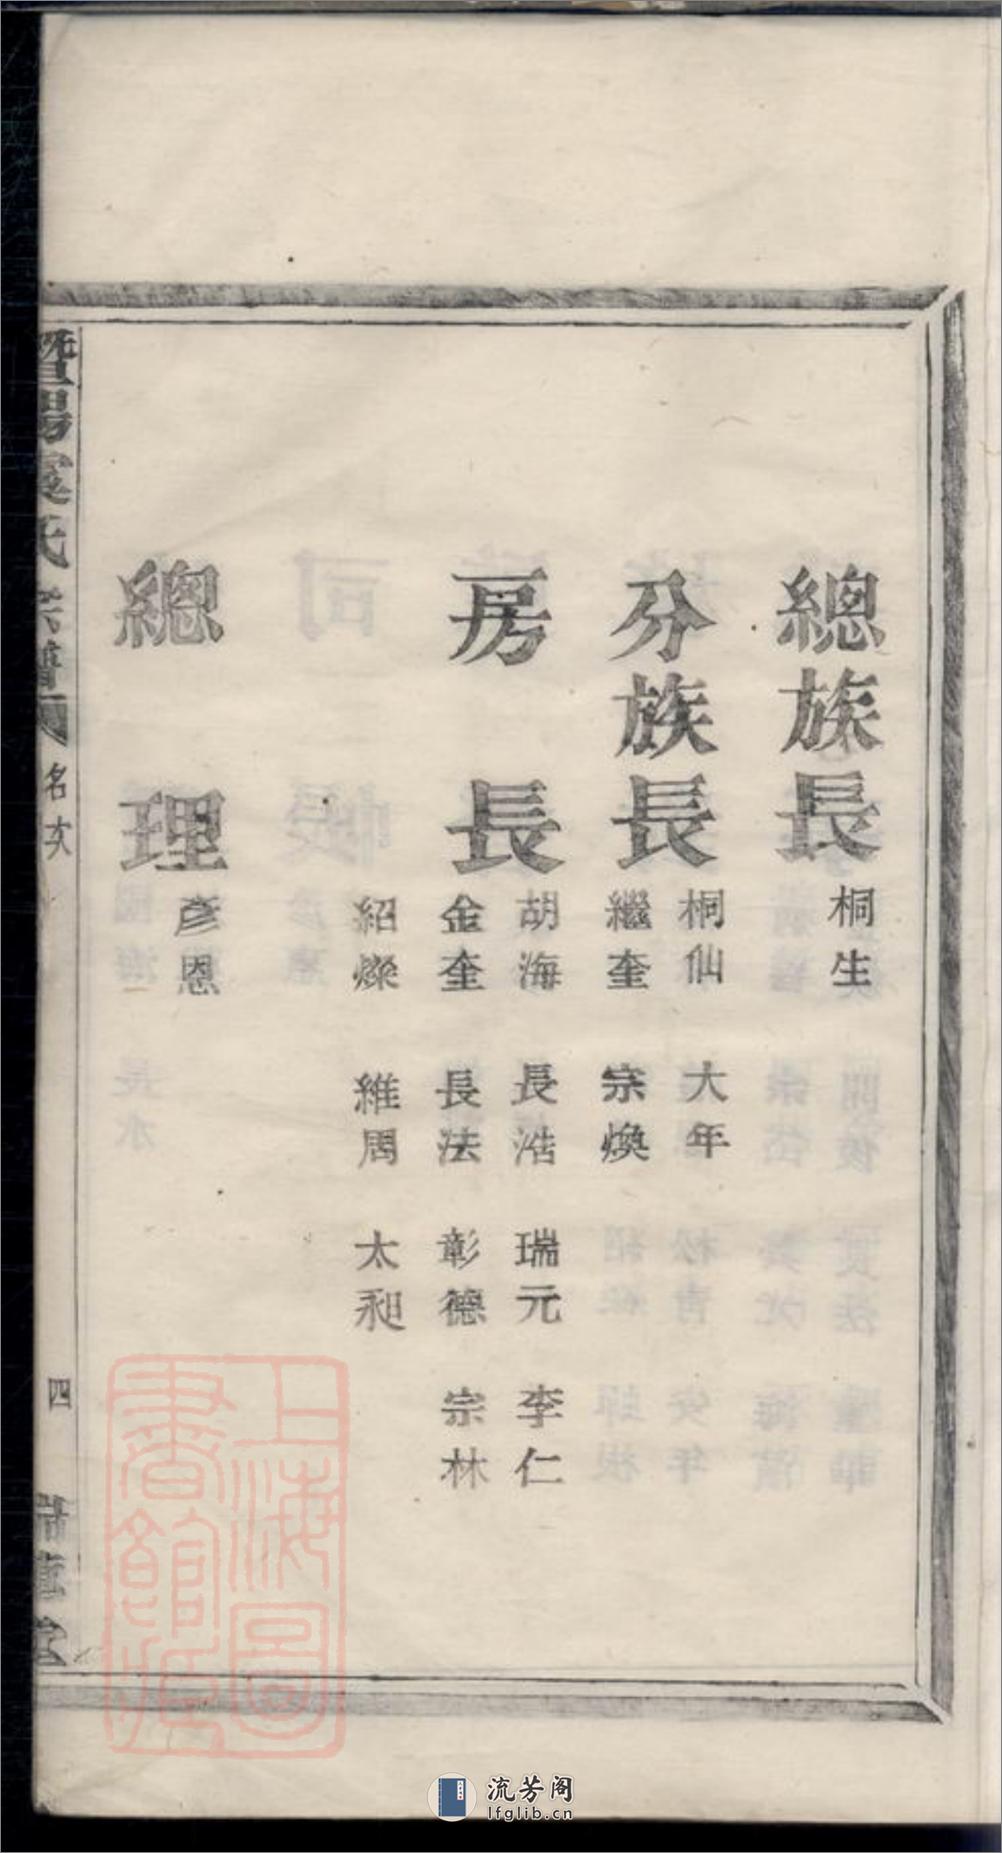 總族長
桐生
分族長
桐仙 大年
繼奎 宗煥
房長
胡海 長浩 瑞元 李仁
金奎 長法 彰德 宗林
紹燦 維周 太和
總理
彥恩
暨陽 氏宗譜 名次 四
上海圖書館藏
流芳阁
lfglib.cn